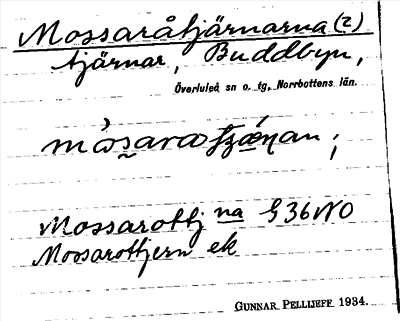 Mossaråtjärnarna (2)
tjärnar, Buddbyn,
Överluleå sn o. tg, Norrbottens län.
Mossarottj na G36NO
Mossarottjern ek
GUNNAR PELLIJEFF 1934.